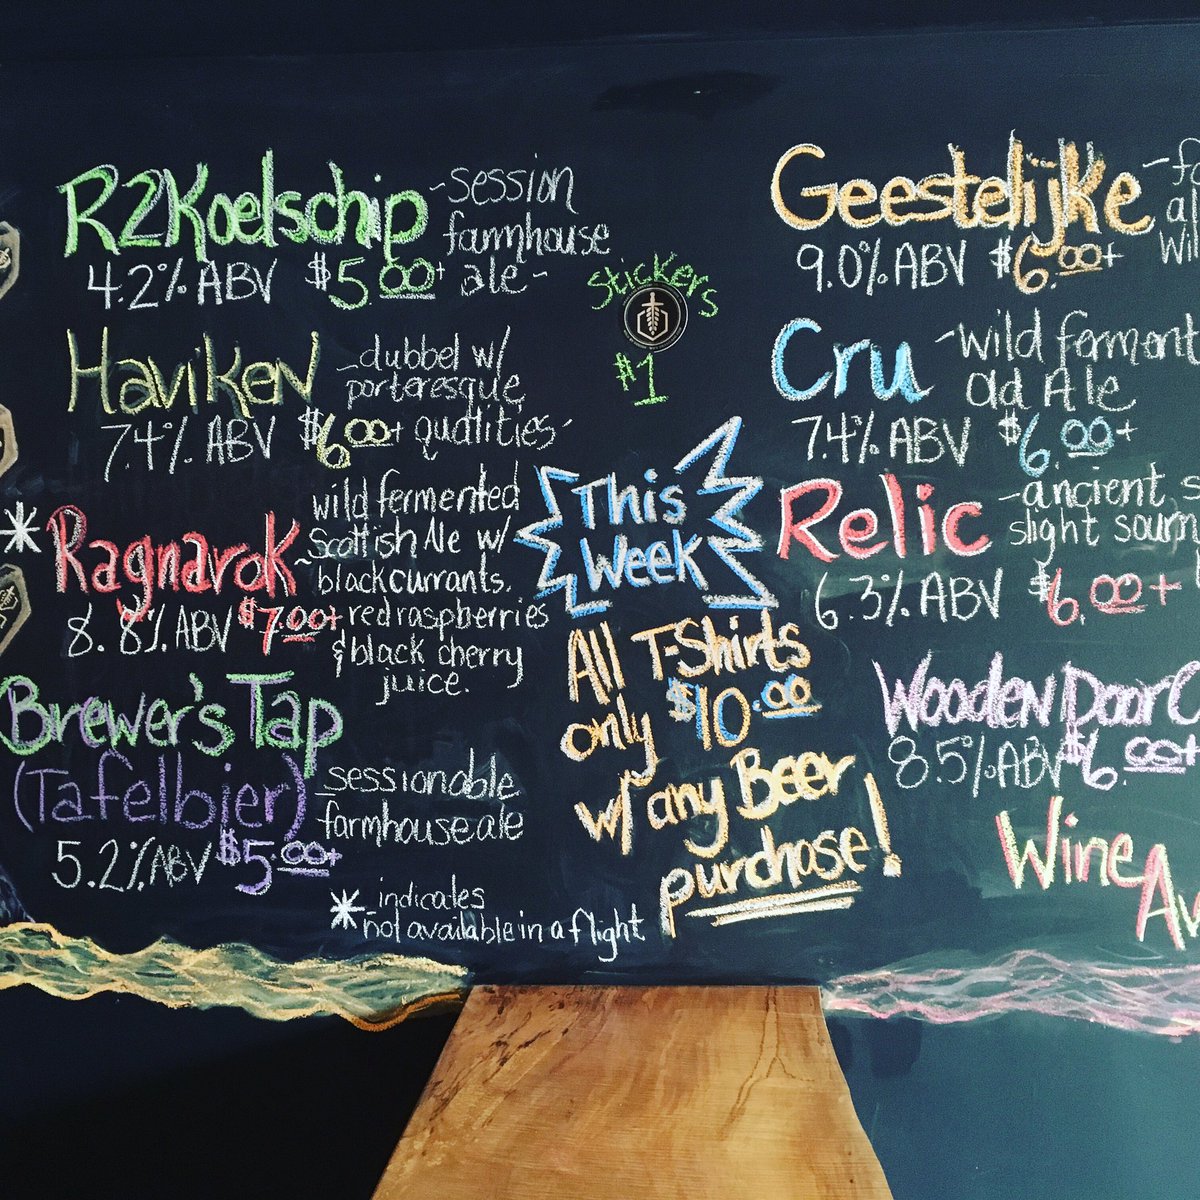 R2Koelschip ~session
farmhouse
ale~
4.2% ABV $5.00+
Haviken -dubbel w/
porteresque
qualities-
7.4% ABV $6.00+
* Ragnarok ~wild fermented
Scottish Ale w/
blackcurrants,
red raspberries
& black cherry
juice.
8.8% ABV $7.00+
Brewer's Tap
(Tafelbier)
sessionable
farmhouse ale
5.2% ABV $5.00+
* indicates
not available in a flight
Stickers
$1
This
Week
All T-Shirts
only $10.00
w/ any Beer
purchase!
Geestelijke
9.0% ABV $6.00+
Cru ~wild ferment
Old Ale
7.4% ABV $6.00+
Relic ~ancient
slight
6.3% ABV $6.00+
Wooden Door
8.5% ABV $6.00+
Wine